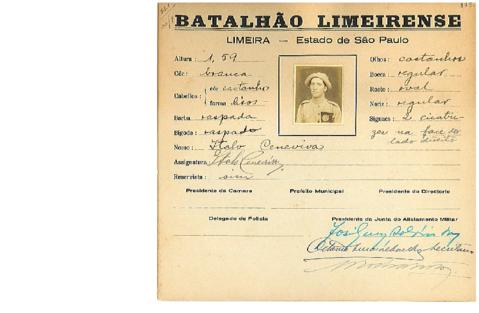 BATALHÃO LIMEIRENSE
LIMEIRA — Estado de São Paulo
Altura: 1,59
Côr: branca
Cabellos: côr castanho
forma lisos
Barba: raspada
Bigode: raspado
Nome: Italo Ceneviva
Assignatura:
Reservista: sim
Olhos: castanhos
Bocca: regular
Rosto: oval
Nariz: regular
Signaes: 2 cicatri-
zes na face do
lado direito
Presidente da Camara Prefeito Municipal Presidente do Directorio
Delegado de Policia Presidente da Junta do Alistamento Militar
Secretario